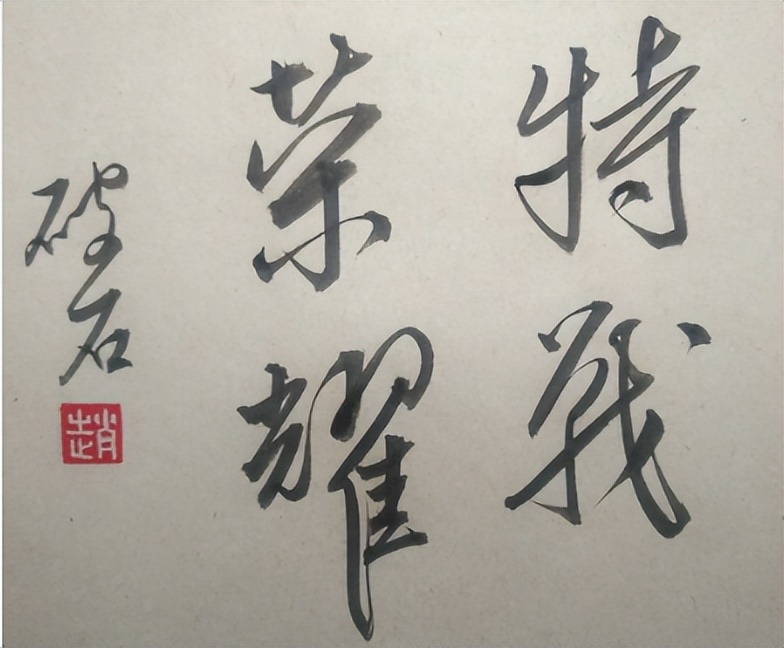 特战
荣耀
破石
趙